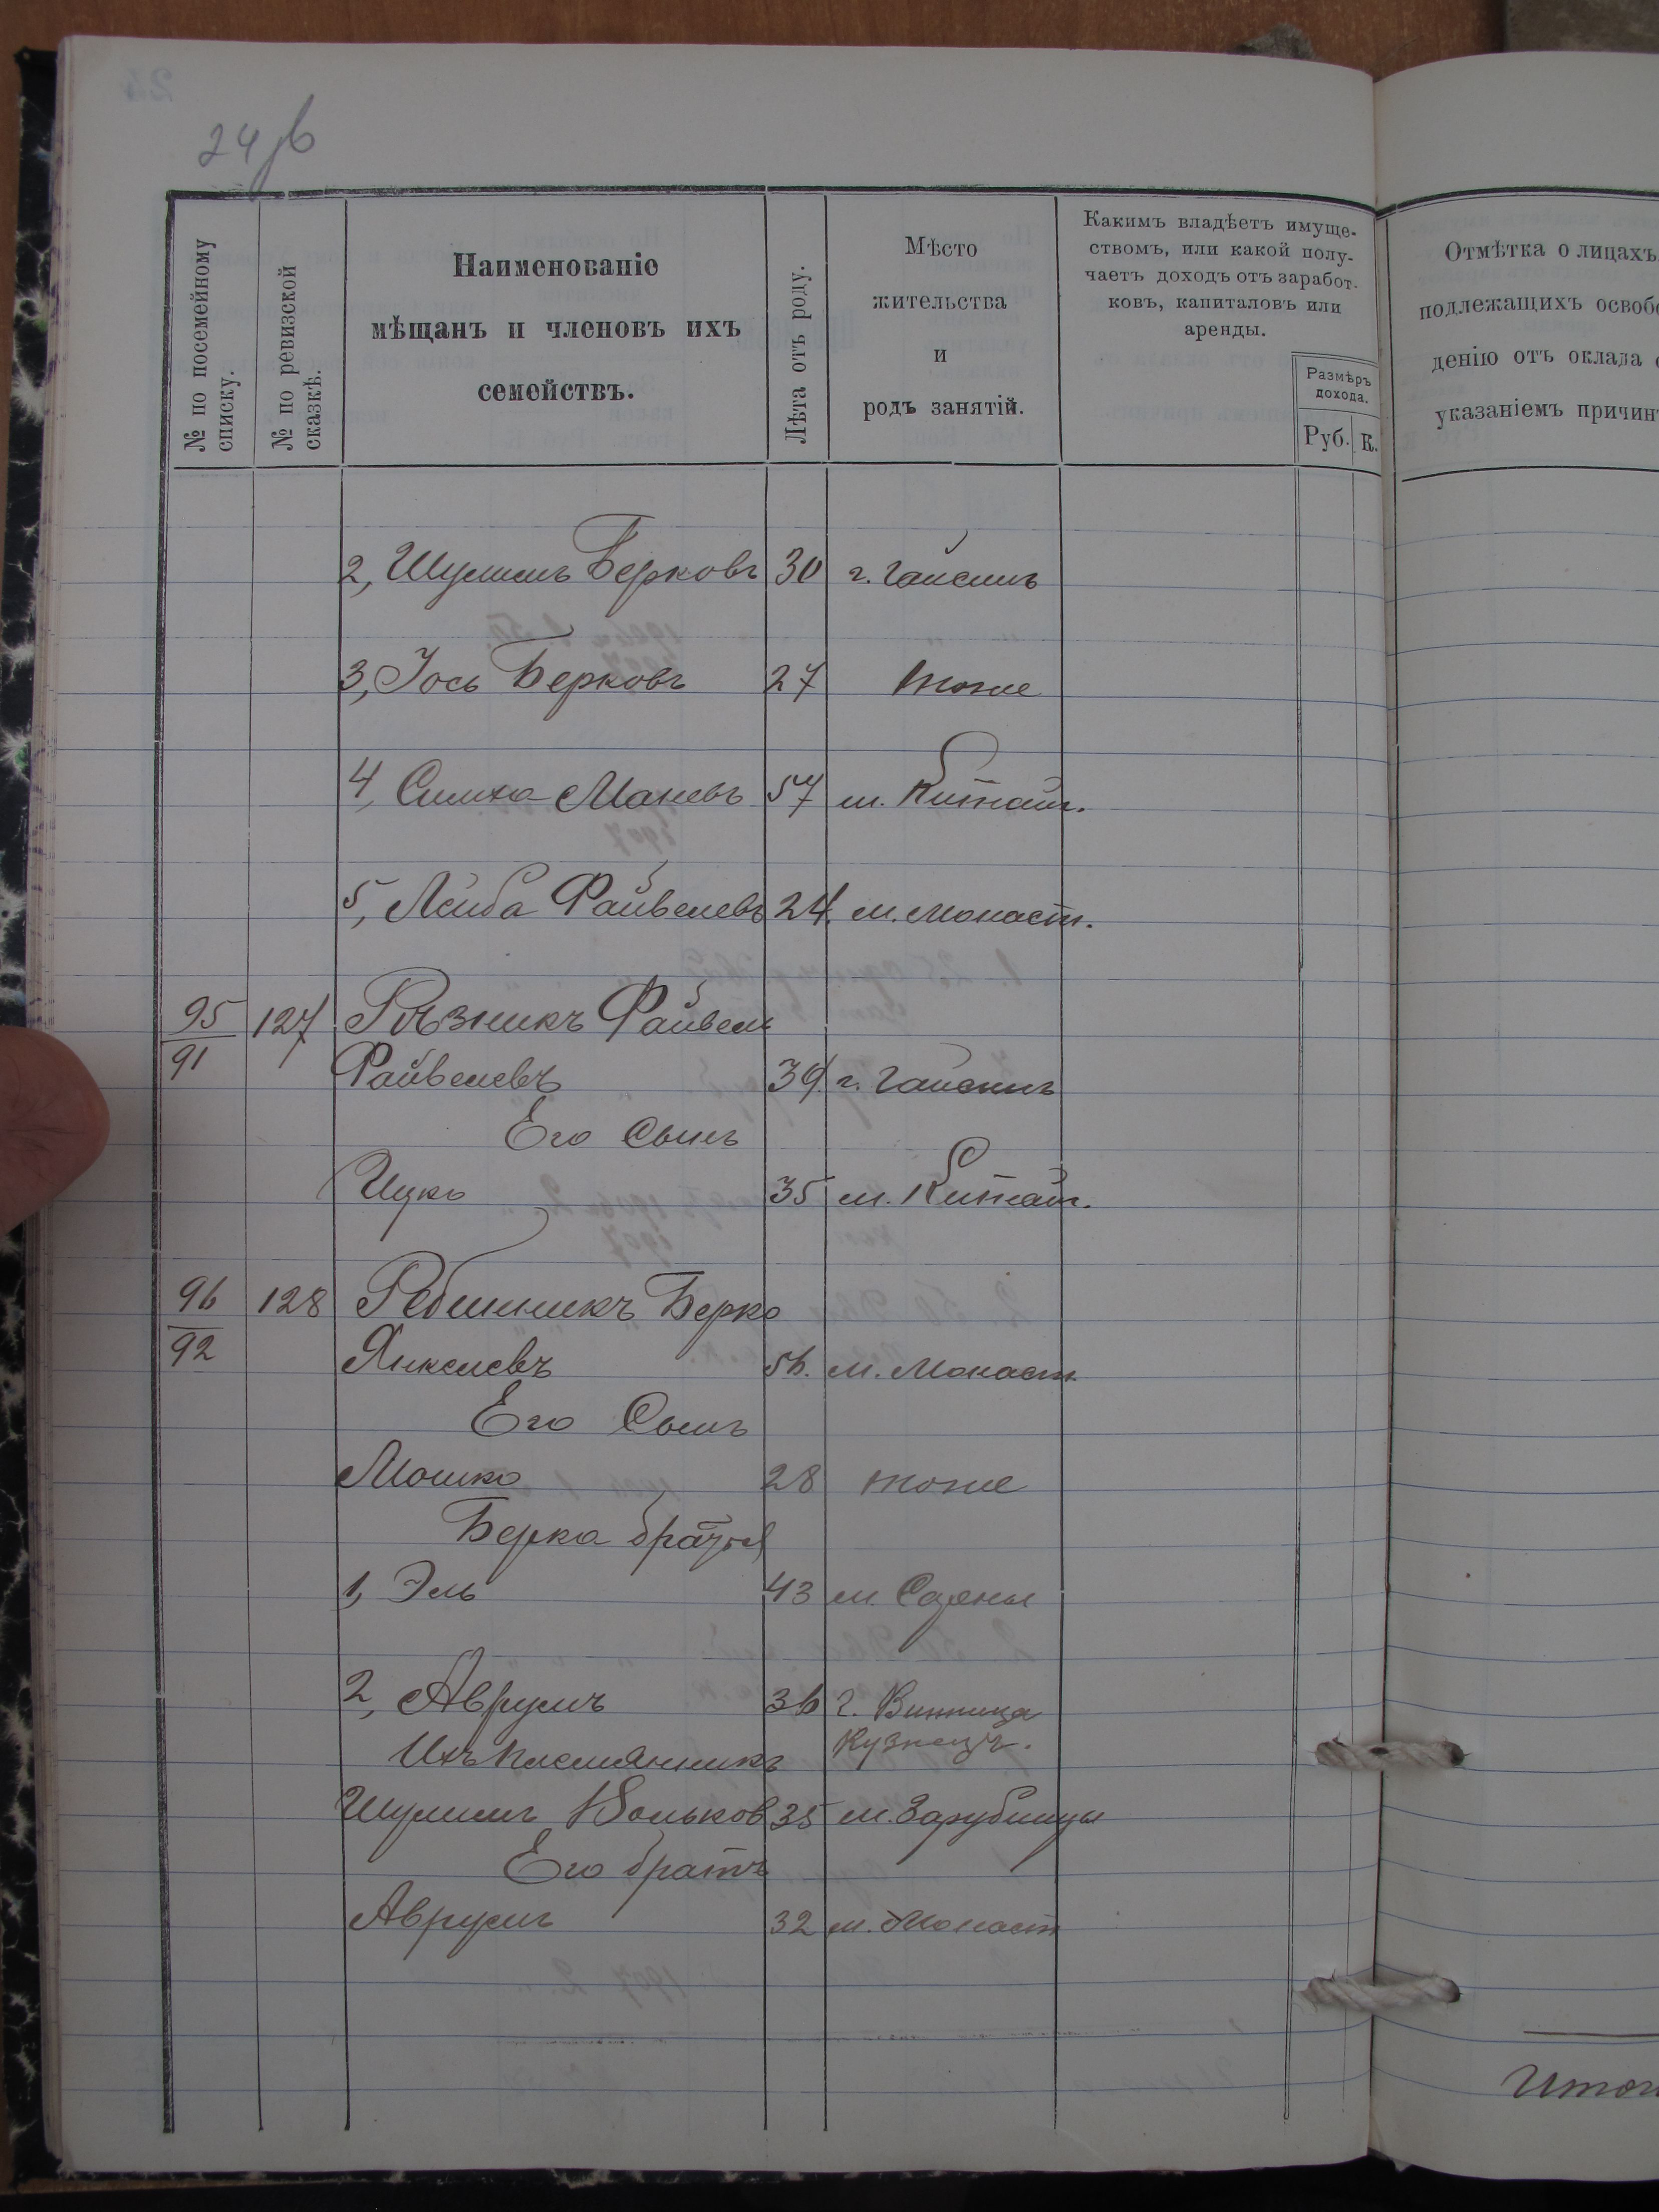 24 об
№ по посемейному
списку.
№ по ревизской
сказкѣ.
Наименованіе
мѣщанъ и членовъ ихъ
семействъ.
Лѣта отъ роду.
Мѣсто
жительства
и
родъ занятій.
Какимъ владѣетъ имуще-
ствомъ, или какой полу-
чаетъ доходъ отъ заработ-
ковъ, капиталовъ или
аренды.
Размѣръ
дохода.
Руб. К.
Отмѣтка о лицахъ
подлежащихъ освобо
денію отъ оклада
указаніемъ причинъ
2, Шулимъ Берковъ 30 г. Гайсинъ
3, Іось Берковъ 27 тоже
4, Симха Маневъ 57 м. Китайг.
5, Лейба Файвелевъ 24. м. Монаст.
95 127 Рѣзникъ Файвель
91 Файвелевъ 39. г. Гайсинъ
Его сынъ
Ицко 35 м. Китайг.
96 128 Ребшникъ Берко
92 Янкелевъ 56. м. Монаст.
Его Сынъ
Мошко 28 тоже
Берка братья
1, Эль 43 м.
2, Аврумъ 36 г. Винница
Ихъ племянникъ Кузнецъ.
Шулимъ Вольков 35 м. Зарубинцы
Его братъ
Аврумъ 32 м. Монаст
Итог